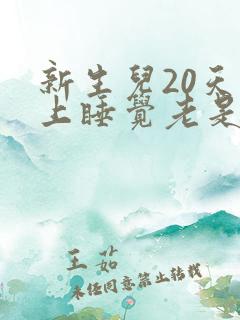 新生兒20天
上睡覺老是
王茹
未经同意禁止转载